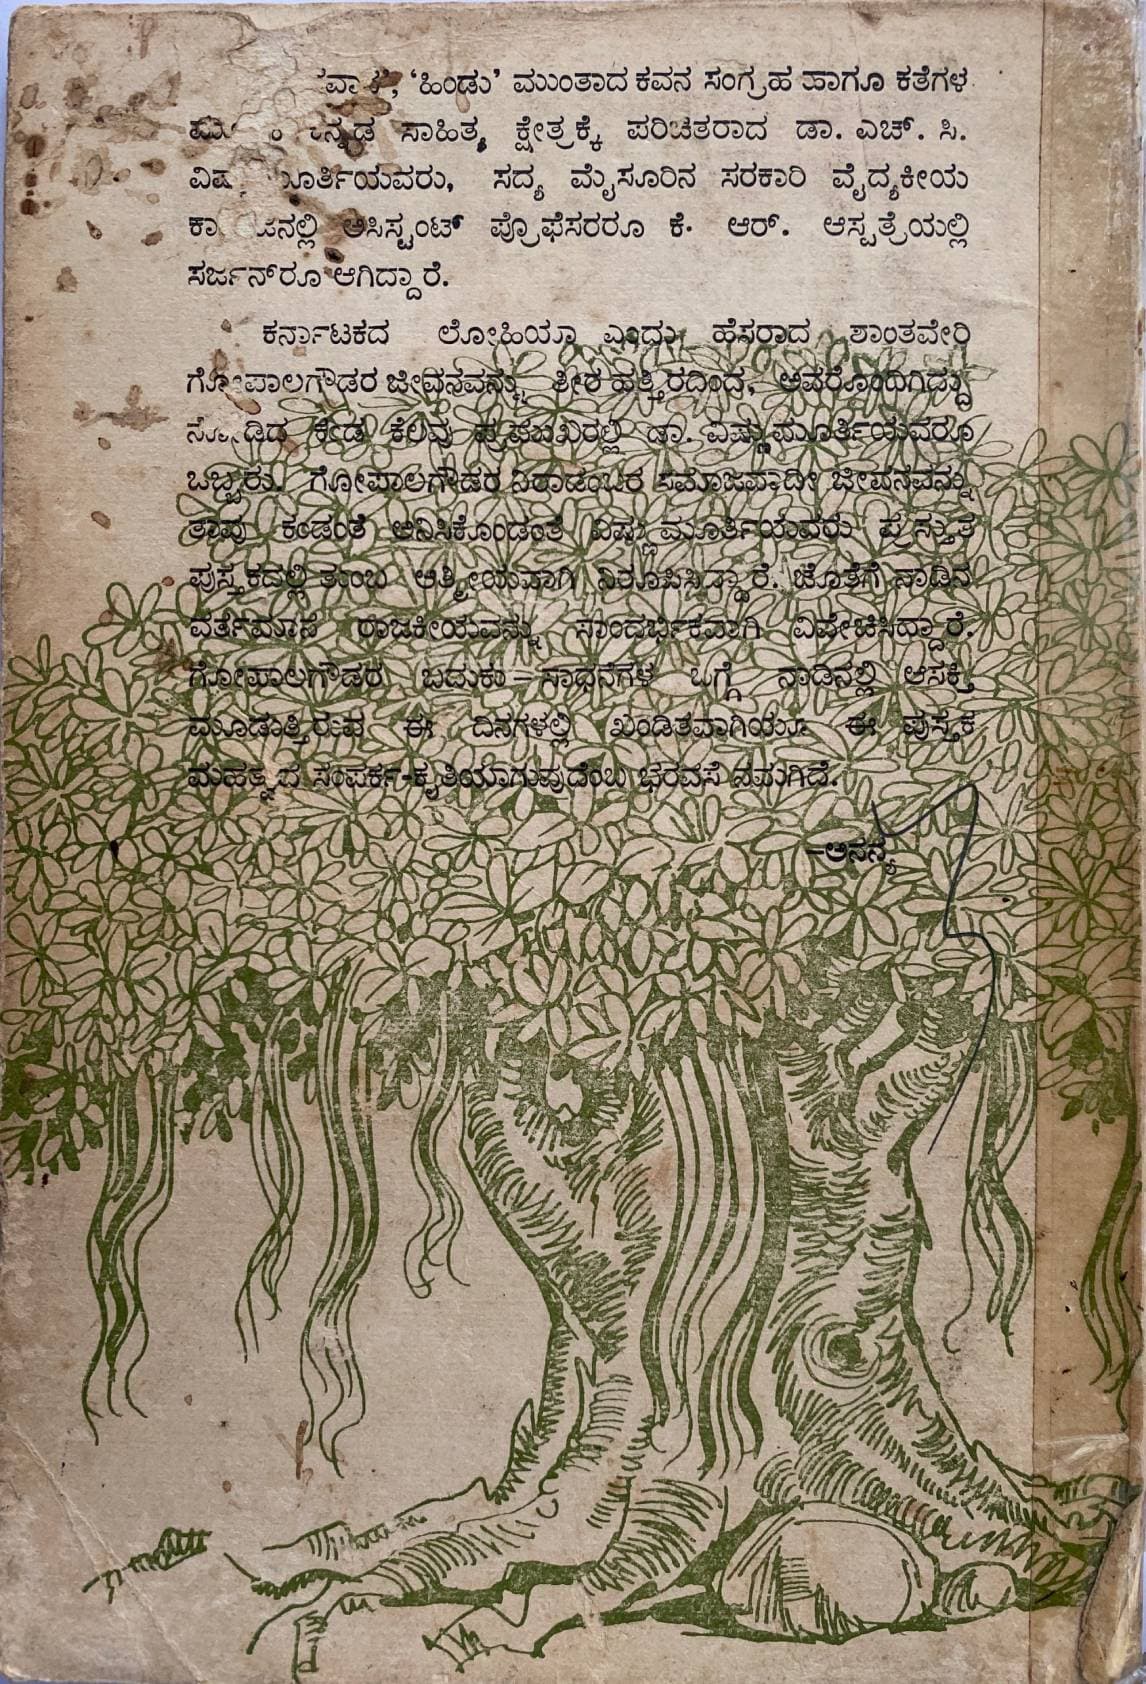 ‘ಹಿಂಡು’ ಮುಂತಾದ ಕವನ ಸಂಗ್ರಹ ಹಾಗೂ ಕತೆಗಳ
ಸಾಹಿತ್ಯ ಕ್ಷೇತ್ರಕ್ಕೆ ಪರಿಚಿತರಾದ ಡಾ. ಎಚ್. ಸಿ.
ಸದ್ಯ ಮೈಸೂರಿನ ಸರಕಾರಿ ವೈದ್ಯಕೀಯ
ಅಸಿಸ್ಟಂಟ್ ಪ್ರೊಫೆಸರರೂ ಕೆ. ಆರ್. ಆಸ್ಪತ್ರೆಯಲ್ಲಿ
ಸರ್ಜನ್‌ರೂ ಆಗಿದ್ದಾರೆ.
ಕರ್ನಾಟಕದ ಲೋಹಿಯಾ ಎಂದು ಹೆಸರಾದ ಶಾಂತವೇರಿ
ಗೋಪಾಲಗೌಡರ ಜೀವನವನ್ನು ತೀರ ಹತ್ತಿರದಿಂದ, ಅವರೊಂದಿಗಿದ್ದು
ನೋಡಿದ ಕೆಲವು ಪ್ರಮುಖರಲ್ಲಿ ಡಾ. ವಿಷ್ಣುಮೂರ್ತಿಯವರೂ
ಒಬ್ಬರು. ಗೋಪಾಲಗೌಡರ ನಿರಾಡಂಬರ ಸಮಾಜವಾದೀ ಜೀವನವನ್ನು
ತಾವು ಕಂಡಂತೆ ಅನಿಸಿಕೊಂಡಂತೆ ವಿಷ್ಣುಮೂರ್ತಿಯವರು ಪ್ರಸ್ತುತ
ಪುಸ್ತಕದಲ್ಲಿ ತುಂಬ ಆತ್ಮೀಯವಾಗಿ ನಿರೂಪಿಸಿದ್ದಾರೆ. ಜೊತೆಗೆ ನಾಡಿನ
ವರ್ತಮಾನ ರಾಜಕೀಯವನ್ನು ಸಾಂದರ್ಭಿಕವಾಗಿ ವಿವೇಚಿಸಿದ್ದಾರೆ.
ಗೋಪಾಲಗೌಡರ ಬದುಕು – ಸಾಧನೆಗಳ ಬಗ್ಗೆ ನಾಡಿನಲ್ಲಿ ಆಸಕ್ತಿ
ಮೂಡುತ್ತಿರುವ ಈ ದಿನಗಳಲ್ಲಿ ಖಂಡಿತವಾಗಿಯೂ ಈ ಪುಸ್ತಕ
ಮಹತ್ವದ ಸಂಪರ್ಕ-ಕೃತಿಯಾಗುವುದೆಂಬ ಭರವಸೆ ನಮಗಿದೆ.
–ಅನನ್ಯ